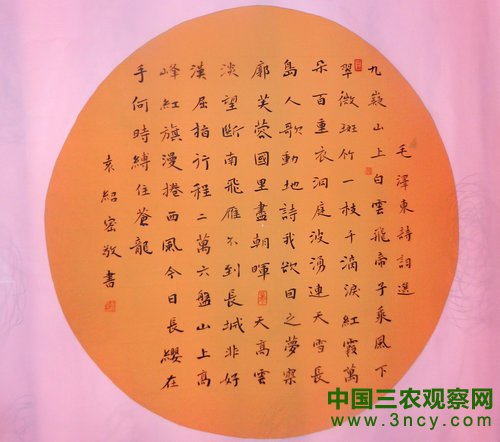 毛澤東詩詞選
九嶷山上白雲飛帝子乘風下
翠微斑竹一枝千滴淚紅霞萬
朵百重衣洞庭波湧連天雪長
島人歌動地詩我欲因之夢寥
廓芙蓉國里盡朝暉 天高雲
淡望斷南飛雁不到長城非好
漢屈指行程二萬六盤山上高
峰紅旗漫捲西風今日長纓在
手何時縛住蒼龍
袁紹密敬書
中国三农观察网
www.3ncy.com